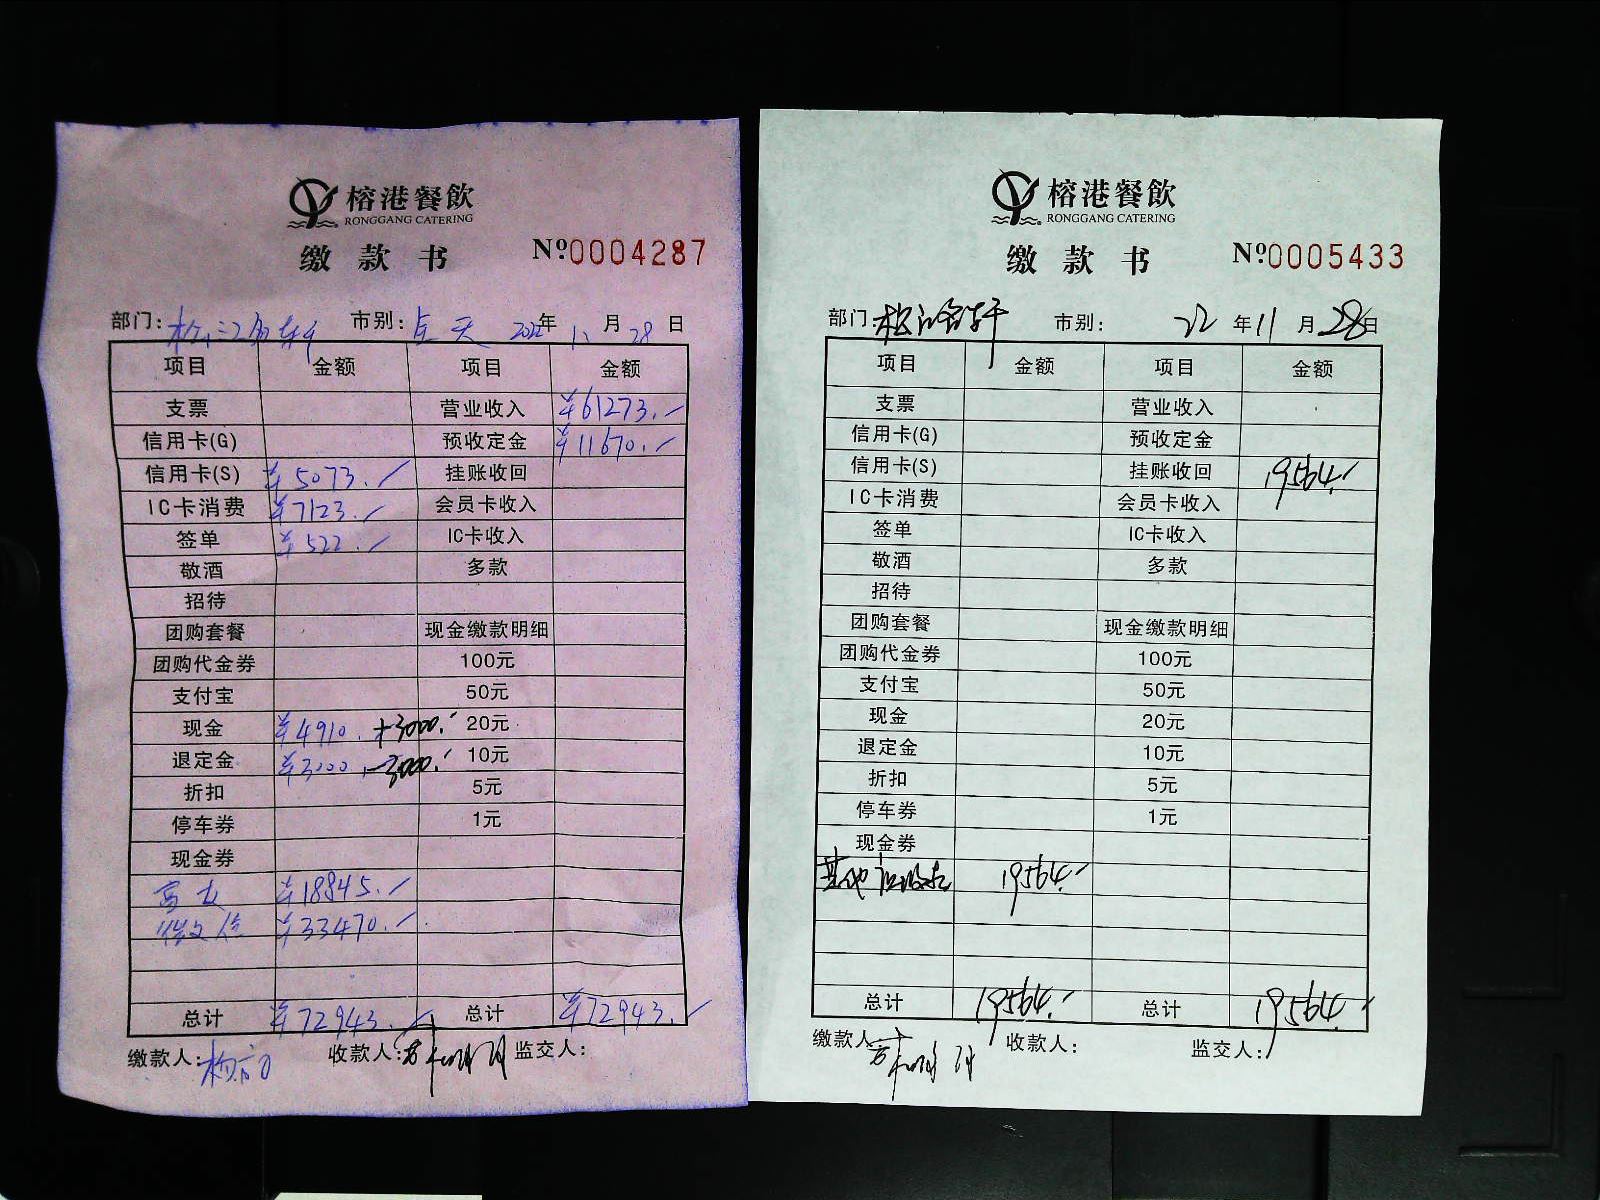 榕港餐飲
RONGGANG CATERING
缴款书 Nº:0004287
部门: 市别: 全天 2022年 11月 28日
项目 金额 项目 金额
支票 营业收入 ¥61273.-
信用卡(G) 预收定金 ¥11670.-
信用卡(S) ¥5073.- 挂账收回
IC卡消费 ¥7123.- 会员卡收入
签单 ¥522.- IC卡收入
敬酒 多款
招待
团购套餐 现金缴款明细
团购代金券 100元
支付宝 50元
现金 ¥4910. +3000. 20元
退定金 ¥3000. -3000. 10元
折扣 5元
停车券 1元
现金券
¥18845.-
微信 ¥33470.-
总计 ¥72943.- 总计 ¥72943.-
缴款人: 收款人: 监交人:
榕港餐飲
RONGGANG CATERING
缴款书 Nº:0005433
部门: 市别: 22年11月28日
项目 金额 项目 金额
支票 营业收入
信用卡(G) 预收定金
信用卡(S) 挂账收回 19564.-
IC卡消费 会员卡收入
签单 IC卡收入
敬酒 多款
招待
团购套餐 现金缴款明细
团购代金券 100元
支付宝 50元
现金 20元
退定金 10元
折扣 5元
停车券 1元
现金券
其他 19564.-
总计 19564.- 总计 19564.-
缴款人: 收款人: 监交人: